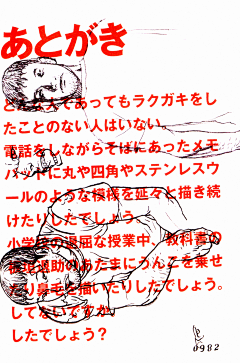 あとがき
どんな人であってもラクガキをし
たことのない人はいない。
電話をしながらそばにあったメモ
パッドに丸や四角やステンレスウ
ールのような模様を延々と描き続
けたりしたでしょう。
小学校の退屈な授業中、教科書の
あたまにうんこを乗せ
たり鼻毛を描いたりしたでしょう。
してないですか。
したでしょう?
0982